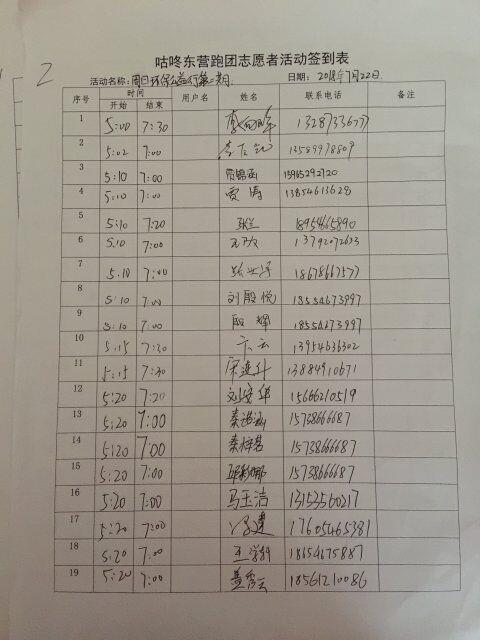 2
咕咚东营跑团志愿者活动签到表
活动名称：周日环保公益行第二期 日期：2018年7月22日
序号 时间 用户名 姓名 联系电话 备注
开始 结束
1 5:00 7:30 13287333677
2 5:02 7:00 13589978809
3 5:10 7:00 15965292720
4 5:10 7:00 贾涛 13854613628
5 5:10 7:20 张兰 18954665890
6 5:10 7:00 13792072633
7 5:10 7:00 18678667577
8 5:10 7:00 刘殿悦 18554673997
9 5:10 7:00 殷辉 18554673997
10 5:15 7:30 卞云 13954636302
11 5:15 7:30 宋连升 13884910671
12 5:20 7:20 刘安华 15666210519
13 5:20 7:00 15738666687
14 5:20 7:00 秦梓茗 15738666687
15 5:20 7:00 15738666687
16 5:20 7:00 马玉洁 13153560217
17 5:20 7:00 冯建 17605465381
18 5:20 7:00 18654675887
19 5:20 7:00 盖秀云 18561210086